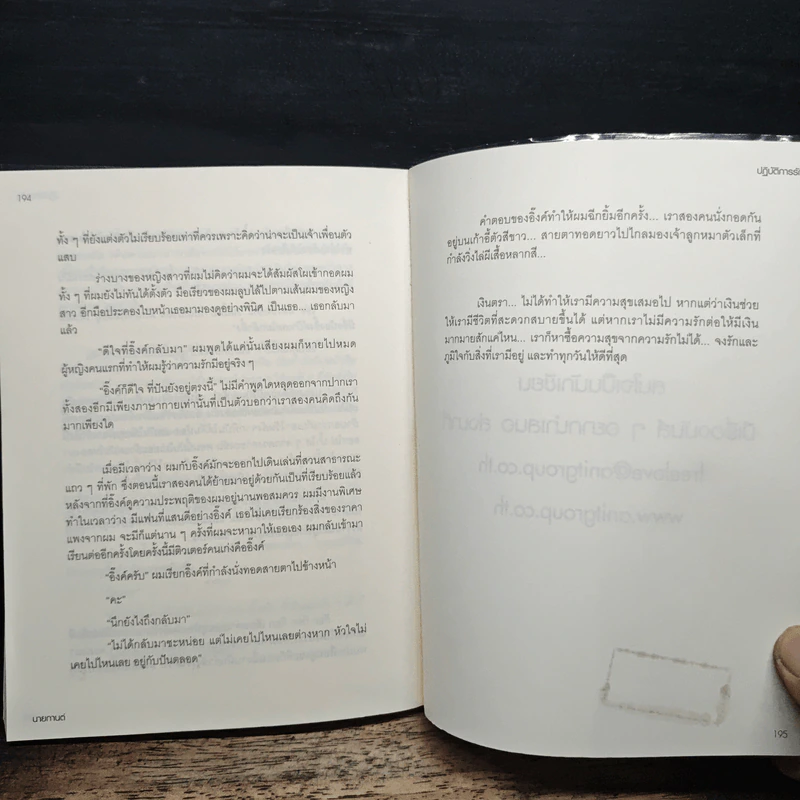 194
ทั้ง ๆ ที่ยังแต่งตัวไม่เรียบร้อยเท่าที่ควรเพราะคิดว่าน่าจะเป็นเจ้าเพื่อนตัว
แสบ
ร่างบางของหญิงสาวที่ผมไม่คิดว่าผมจะได้สัมผัสโผเข้ากอดผม
ทั้ง ๆ ที่ผมยังไม่ทันได้ตั้งตัว มือเรียวของผมลูบไล้ไปตามเส้นผมของหญิง
สาว อีกมือประคองใบหน้าเธอมามองดูอย่างพินิศ เป็นเธอ... เธอกลับมา
แล้ว
“ดีใจที่อิ๊งค์กลับมา” ผมพูดได้แค่นั้นเสียงผมก็หายไปหมด
ผู้หญิงคนแรกที่ทำให้ผมรู้ว่าความรักมีอยู่จริง ๆ
“อิ๊งค์ก็ดีใจ ที่ปันยังอยู่ตรงนี้” ไม่มีคำพูดใดหลุดออกจากปากเรา
ทั้งสองอีกมีเพียงภาษากายเท่านั้นที่เป็นตัวบอกว่าเราสองคนคิดถึงกัน
มากเพียงใด
เมื่อมีเวลาว่าง ผมกับอิ๊งค์มักจะออกไปเดินเล่นที่สวนสาธารณะ
แถว ๆ ที่พัก ซึ่งตอนนี้เราสองคนได้ย้ายมาอยู่ด้วยกันเป็นที่เรียบร้อยแล้ว
หลังจากที่อิ๊งค์ดูความประพฤติของผมอยู่นานพอสมควร ผมมีงานพิเศษ
ทำในเวลาว่าง มีแฟนที่แสนดีอย่างอิ๊งค์ เธอไม่เคยเรียกร้องสิ่งของราคา
แพงจากผม จะมีก็แต่นาน ๆ ครั้งที่ผมจะหามาให้เธอเอง ผมกลับเข้ามา
เรียนต่ออีกครั้งโดยครั้งนี้มีติวเตอร์คนเก่งคืออิ๊งค์
“อิ๊งค์ครับ” ผมเรียกอิ๊งค์ที่กำลังนั่งทอดสายตาไปข้างหน้า
“คะ”
“นึกยังไงถึงกลับมา”
“ไม่ได้กลับมาซะหน่อย แต่ไม่เคยไปไหนเลยต่างหาก หัวใจไม่
เคยไปไหนเลย อยู่กับปันตลอด”
นายกานต์
ปฏิบัติการรัก
คำตอบของอิ๊งค์ทำให้ผมฉีกยิ้มอีกครั้ง... เราสองคนนั่งกอดกัน
อยู่บนเก้าอี้ตัวสีขาว... สายตาทอดยาวไปไกลมองเจ้าลูกหมาตัวเล็กที่
กำลังวิ่งไล่ผีเสื้อหลากสี...
เงินตรา... ไม่ได้ทำให้เรามีความสุขเสมอไป หากแต่ว่าเงินช่วย
ให้เรามีชีวิตที่สะดวกสบายขึ้นได้ แต่หากเราไม่มีความรักต่อให้มีเงิน
มากมายสักแค่ไหน... เราก็หาซื้อความสุขจากความรักไม่ได้... จงรักและ
ภูมิใจกับสิ่งที่เรามีอยู่ และทำทุกวันให้ดีที่สุด
195